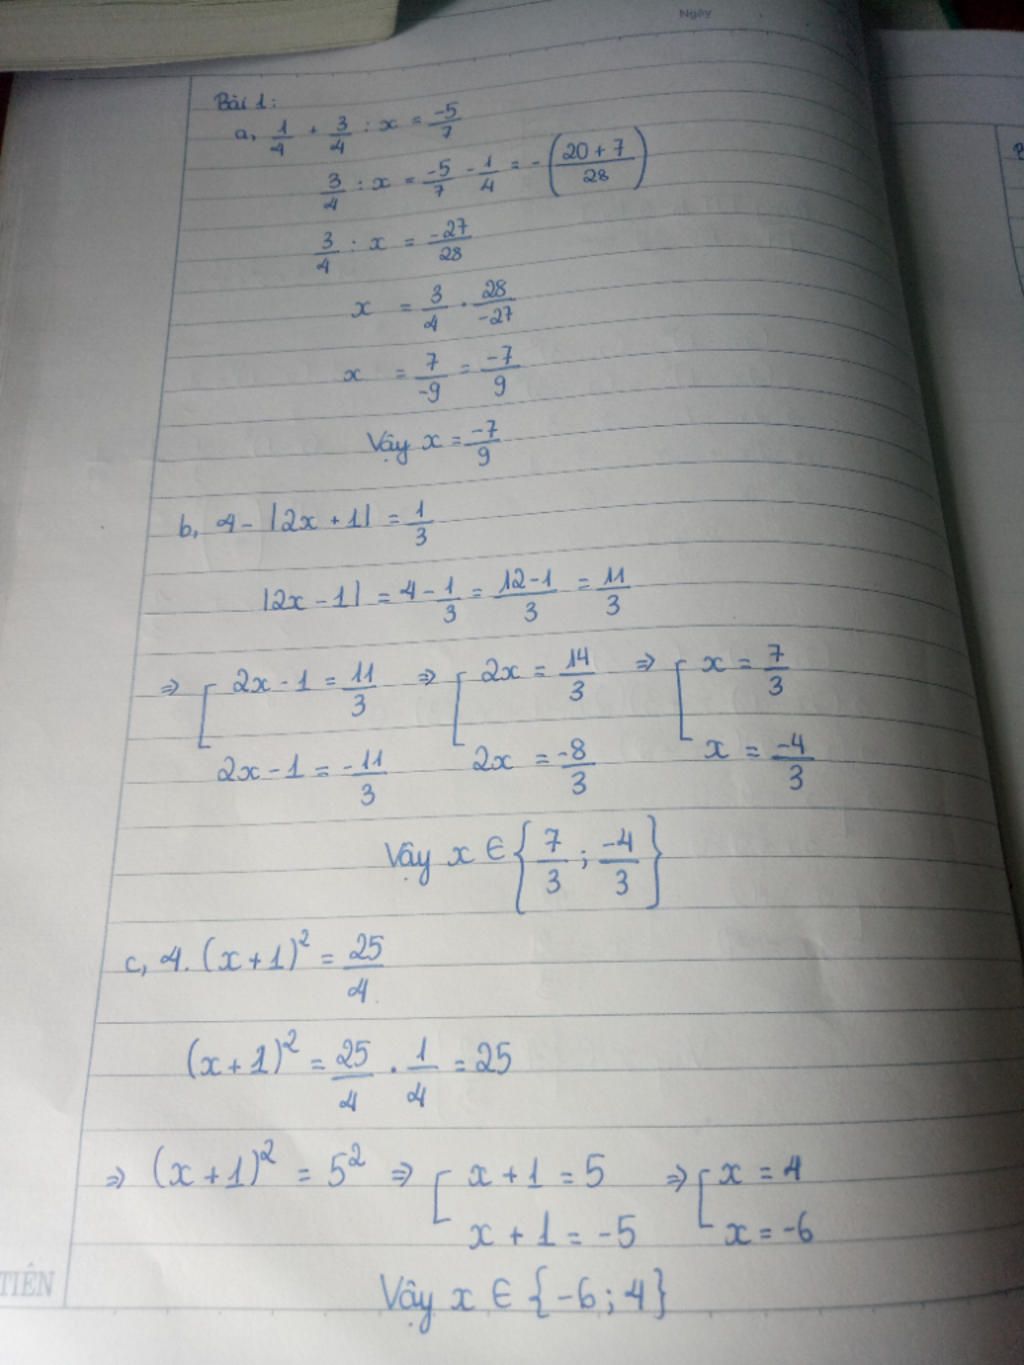 Ngày
Bài 1:
a, 1/4 + 3/4 : x = -5/7
3/4 : x = -5/7 - 1/4 = -(20+7/28)
3/4 : x = -27/28
x = 3/4 . 28/-27
x = 7/-9 = -7/9
Vậy x = -7/9
b, 4 - |2x + 1| = 1/3
|2x - 1| = 4 - 1/3 = 12-1/3 = 11/3
⇒ [ 2x - 1 = 11/3 ⇒ [ 2x = 14/3 ⇒ [ x = 7/3
2x - 1 = -11/3 2x = -8/3 x = -4/3
Vậy x ∈ {7/3 ; -4/3}
c, 4. (x+1)² = 25/4
(x+1)² = 25/4 . 1/4 = 25
⇒ (x+1)² = 5² ⇒ [ x + 1 = 5 ⇒ [ x = 4
x + 1 = -5 x = -6
TIÊN
Vậy x ∈ {-6 ; 4}